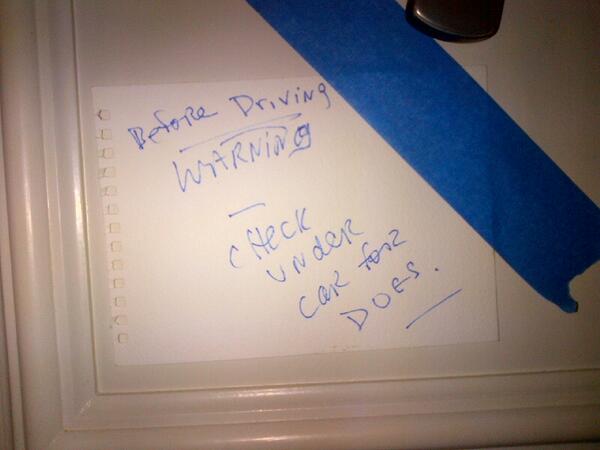 Before Driving
WARNING
CHECK
UNDER
CAR FOR
DOES.